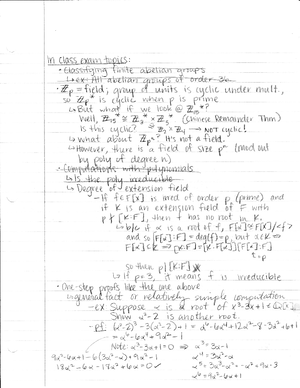 In class exam topics:
• Classifying finite abelian groups
↳ ex: All abelian groups of order 36
• ℤp = field; group of units is cyclic under mult.,
so ℤp* is cyclic when p is prime
But what if we look @
Well, ℤ15* ≅ ℤ3* × ℤ5* (Chinese Remainder Thm)
Is this cyclic? → NOT cyclic!
↳ What about It's not a field.
↳ However, there is a field of size (mod out
by poly of degree n)
• Computations with polynomials
↳ Is the poly irreducible
↳ Degree of extension field
- If f∈F[x] is irred of order p (prime) and
if K is an extension field of F with
p∤[K:F], then f has no root in K.
↳ b/c if α is a root of f, F[α]≅F[x]/<f>
and so F[α]:F = deg(f) = p, but α∈K ⇒
F[α]⊆K ⇒ [K:F] = [K:F[α]][F[α]:F]
so then p|[K:F]
↳ if p=3, it means f is irreducible
• One-step proofs like the one above
↳ general fact or relatively simple computation
- ex: Suppose α is a root of x³-3x+1∈ℚ[x]
Show α²-2 is another root.
- pf: (α²-2)³-3(α²-2)+1 = α⁶-6α⁴+12α²-8-3α²+6+1
= α⁶-6α⁴+9α²-1
Note α³-3α+1=0 ⇒ α³=3α-1
α⁴=3α²-α
α⁶=9α²-6α+1